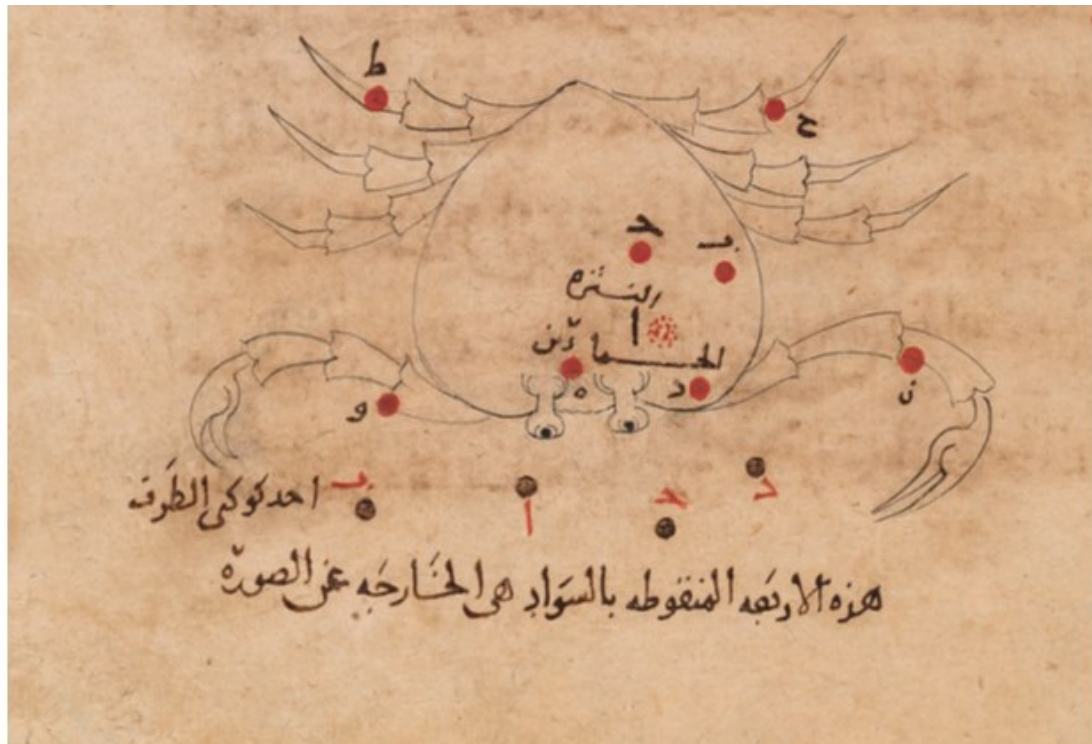 ط
ح
ج
ب
النثره
ا
الحمارين
ه
د
و
ز
احد كوكبى الطرف
ب
ا
ج
د
هذه الاربعه المنقوطه بالسواد هى الخارجه عن الصورة